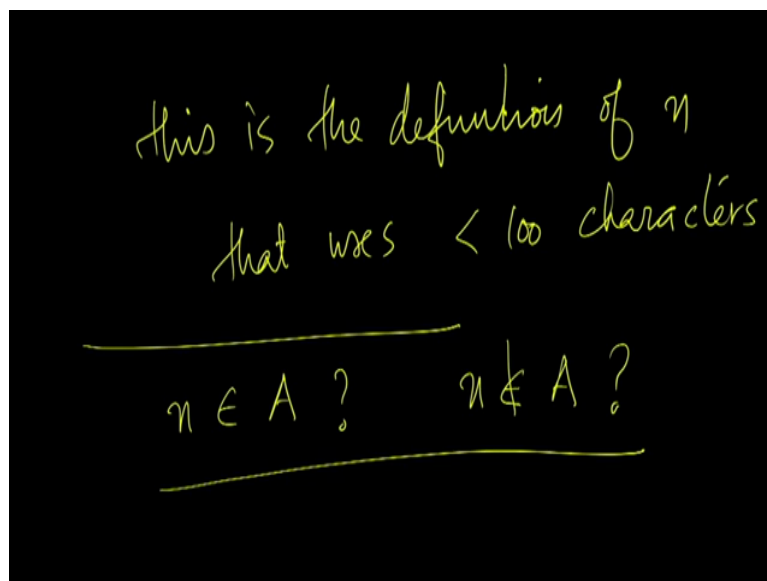 this is the definition of n
that uses < 100 characters
n ∈ A ? n ∉ A ?